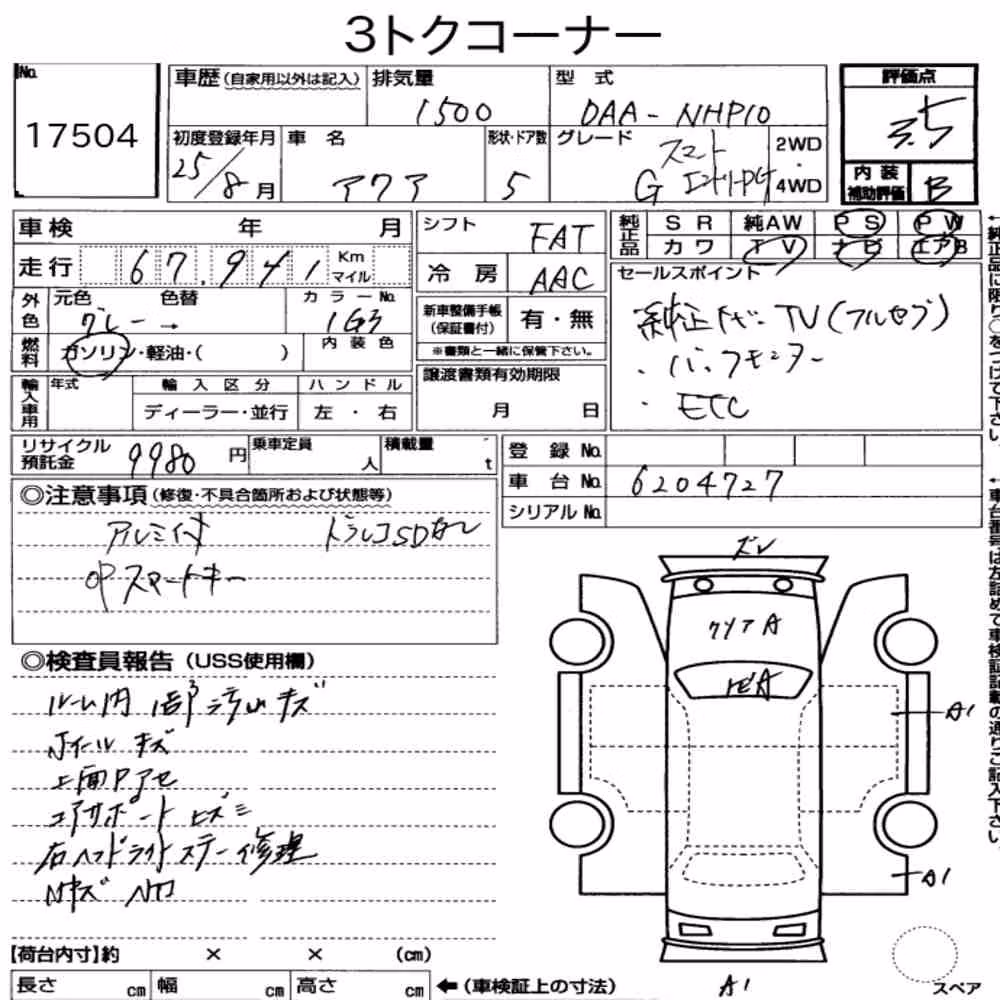 3トクコーナー
No. 17504
車歴(自家用以外は記入)
排気量 1500
型式 DAA-NHP10
評価点 3.5
初度登録年月 25/8月
車名 アクア
形状・ドア数 5
グレード G スマート エントリーPKG
2WD・4WD
内装補助評価 B
車検 年 月
走行 67,941 Km マイル
シフト FAT
冷房 AAC
純正品 SR 純AW PS PW
カワ TV ナビ エアB
外色 元色 グレー → 色替
カラーNo. 1G3
燃料 ガソリン・軽油・( )
内装色
新車整備手帳(保証書付) 有・無
※書類と一緒に保管下さい。
セールスポイント
純正ナビ TV(フルセグ)
・バックモニター
・ETC
輸入車用 年式
輸入区分 ディーラー・並行
ハンドル 左・右
譲渡書類有効期限 月 日
リサイクル預託金 9980円
乗車定員 人
積載量 t
登録No.
車台No. 6204727
シリアルNo.
◎注意事項(修復・不具合箇所および状態等)
アルミ付 ドラレコSDなし
OPスマートキー
◎検査員報告(USS使用欄)
ルーム内
キズ
ホイール キズ
上面Pアセ
コアサポート ヒズミ
右ヘッドライトステー修理
ズレ
クリアA
トビA
A1
A1
A1
スペア
【荷台内寸】約 × × (cm)
長さ cm 幅 cm 高さ cm ←(車検証上の寸法)
←純正品に限り○をつけて下さい。
←車台番号は左詰めで車検証記載の通りご記入下さい。